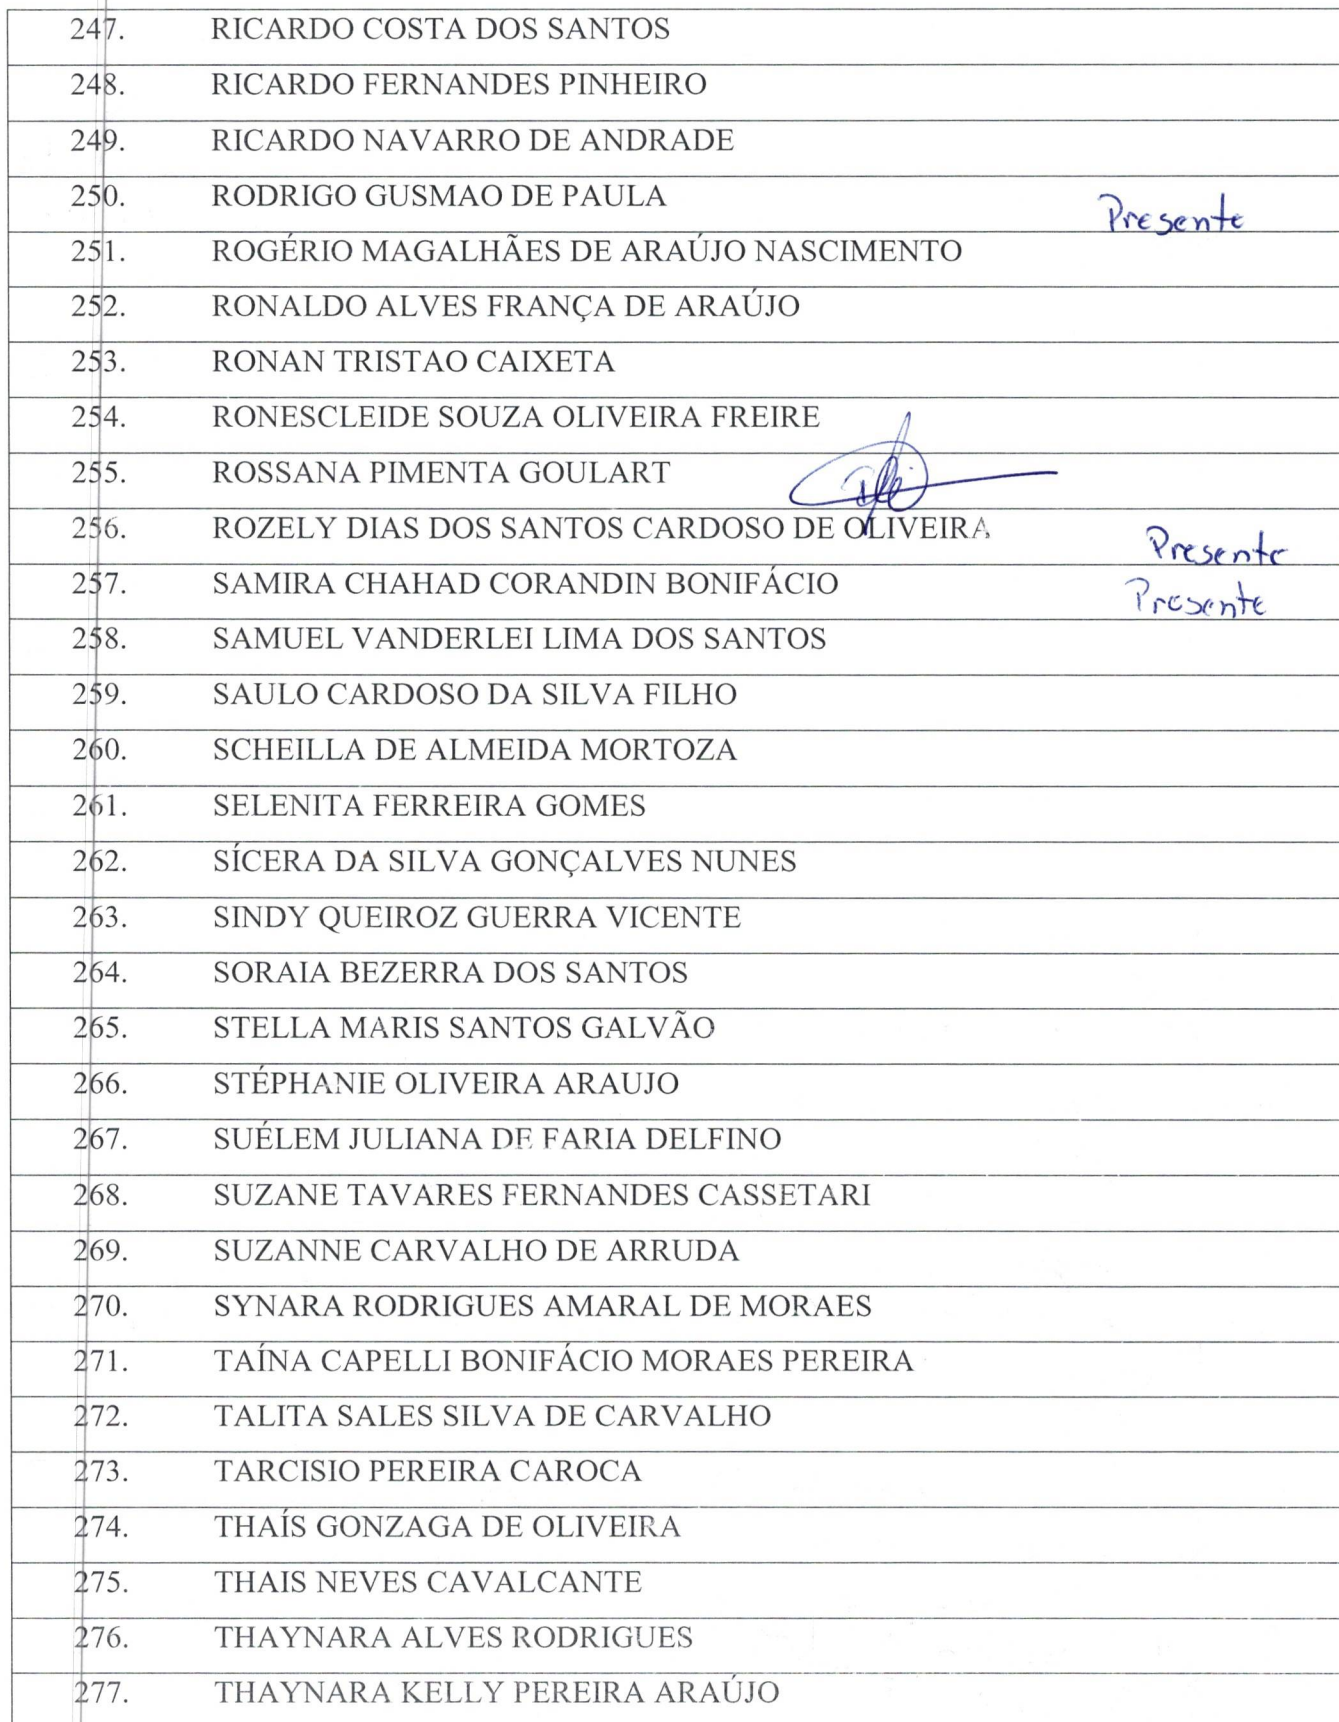 247. RICARDO COSTA DOS SANTOS
248. RICARDO FERNANDES PINHEIRO
249. RICARDO NAVARRO DE ANDRADE
250. RODRIGO GUSMAO DE PAULA Presente
251. ROGÉRIO MAGALHÃES DE ARAÚJO NASCIMENTO
252. RONALDO ALVES FRANÇA DE ARAÚJO
253. RONAN TRISTAO CAIXETA
254. RONESCLEIDE SOUZA OLIVEIRA FREIRE
255. ROSSANA PIMENTA GOULART
256. ROZELY DIAS DOS SANTOS CARDOSO DE OLIVEIRA Presente
257. SAMIRA CHAHAD CORANDIN BONIFÁCIO Presente
258. SAMUEL VANDERLEI LIMA DOS SANTOS
259. SAULO CARDOSO DA SILVA FILHO
260. SCHEILLA DE ALMEIDA MORTOZA
261. SELENITA FERREIRA GOMES
262. SÍCERA DA SILVA GONÇALVES NUNES
263. SINDY QUEIROZ GUERRA VICENTE
264. SORAIA BEZERRA DOS SANTOS
265. STELLA MARIS SANTOS GALVÃO
266. STÉPHANIE OLIVEIRA ARAUJO
267. SUÉLEM JULIANA DE FARIA DELFINO
268. SUZANE TAVARES FERNANDES CASSETARI
269. SUZANNE CARVALHO DE ARRUDA
270. SYNARA RODRIGUES AMARAL DE MORAES
271. TAÍNA CAPELLI BONIFÁCIO MORAES PEREIRA
272. TALITA SALES SILVA DE CARVALHO
273. TARCISIO PEREIRA CAROCA
274. THAÍS GONZAGA DE OLIVEIRA
275. THAIS NEVES CAVALCANTE
276. THAYNARA ALVES RODRIGUES
277. THAYNARA KELLY PEREIRA ARAÚJO